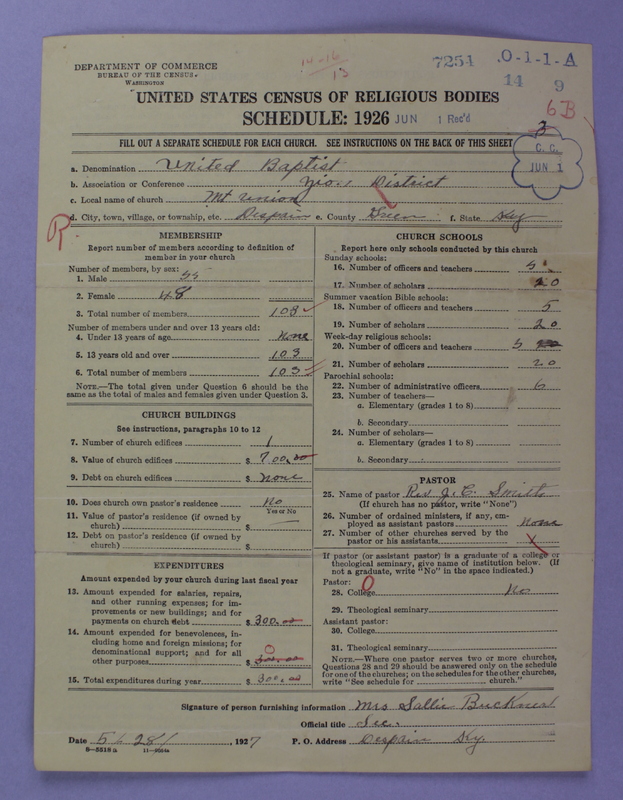 DEPARTMENT OF COMMERCE
BUREAU OF THE CENSUS
WASHINGTON
14-16
13
7254 .O-1-1-A
14 9
6B
UNITED STATES CENSUS OF RELIGIOUS BODIES
SCHEDULE: 1926 JUN 1 Rec'd
3
FILL OUT A SEPARATE SCHEDULE FOR EACH CHURCH. SEE INSTRUCTIONS ON THE BACK OF THIS SHEET
C. C.
JUN 1
a. Denomination United Baptist
b. Association or Conference Zion District
c. Local name of church Mt Union
d. City, town, village, or township, etc. Despain e. County Green f. State Ky
R.
MEMBERSHIP
Report number of members according to definition of member in your church
Number of members, by sex:
1. Male 55
2. Female 48
3. Total number of members 103
Number of members under and over 13 years old:
4. Under 13 years of age None
5. 13 years old and over 103
6. Total number of members 103
NOTE.—The total given under Question 6 should be the same as the total of males and females given under Question 3.
CHURCH BUILDINGS
See instructions, paragraphs 10 to 12
7. Number of church edifices 1
8. Value of church edifices $ 700.00
9. Debt on church edifices $ none
10. Does church own pastor's residence No
Yes or No
11. Value of pastor's residence (if owned by church) $
12. Debt on pastor's residence (if owned by church) $
EXPENDITURES
Amount expended by your church during last fiscal year
13. Amount expended for salaries, repairs, and other running expenses; for improvements or new buildings; and for payments on church debt $ 300.00
14. Amount expended for benevolences, including home and foreign missions; for denominational support; and for all other purposes $ 300.00 0
15. Total expenditures during year $ 300.00
CHURCH SCHOOLS
Report here only schools conducted by this church
Sunday schools:
16. Number of officers and teachers 5
17. Number of scholars 20
Summer vacation Bible schools:
18. Number of officers and teachers 5
19. Number of scholars 20
Week-day religious schools:
20. Number of officers and teachers 5
21. Number of scholars 20
Parochial schools:
22. Number of administrative officers 6
23. Number of teachers—
a. Elementary (grades 1 to 8)
b. Secondary
24. Number of scholars—
a. Elementary (grades 1 to 8)
b. Secondary
PASTOR
25. Name of pastor Rev J. C. Smith
(If church has no pastor, write "None")
26. Number of ordained ministers, if any, employed as assistant pastors None
27. Number of other churches served by the pastor or his assistants X
If pastor (or assistant pastor) is a graduate of a college or theological seminary, give name of institution below. (If not a graduate, write "No" in the space indicated.)
Pastor: 0
28. College No
29. Theological seminary
Assistant pastor:
30. College
31. Theological seminary
NOTE.—Where one pastor serves two or more churches, Questions 28 and 29 should be answered only on the schedule for one of the churches; on the schedules for the other churches, write "See schedule for church."
Signature of person furnishing information Mrs Sallie Buckner
Official title Sec.
Date 5 28, 1927 P. O. Address Despain Ky.
8-5518 a